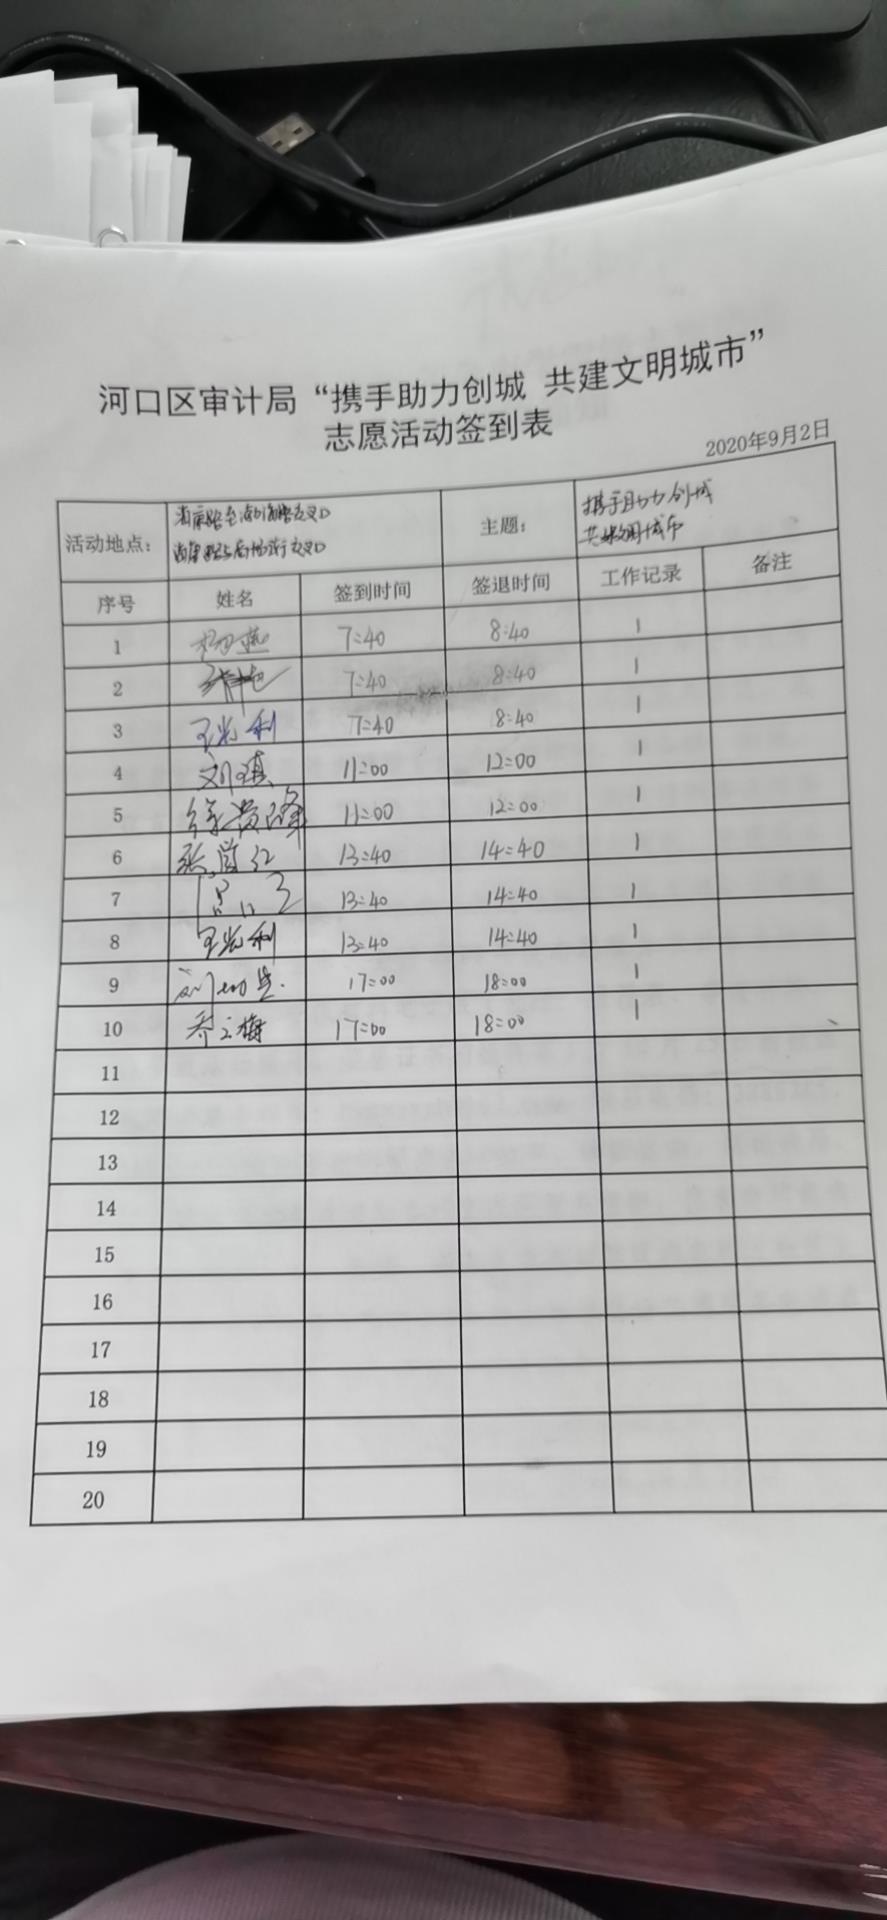 河口区审计局“携手助力创城 共建文明城市”
志愿活动签到表
2020年9月2日
活动地点： 主题： 携手助力创城
共建文明城市
序号 姓名 签到时间 签退时间 工作记录 备注
1 杨燕 7:40 8:40 1
2 7:40 8:40 1
3 王光利 7:40 8:40 1
4 刘琪 11:00 12:00 1
5 徐发峰 11:00 12:00 1
6 13:40 14:40 1
7 13:40 14:40 1
8 王光利 13:40 14:40 1
9 17:00 18:00 1
10 乔立梅 17:00 18:00 1
11
12
13
14
15
16
17
18
19
20